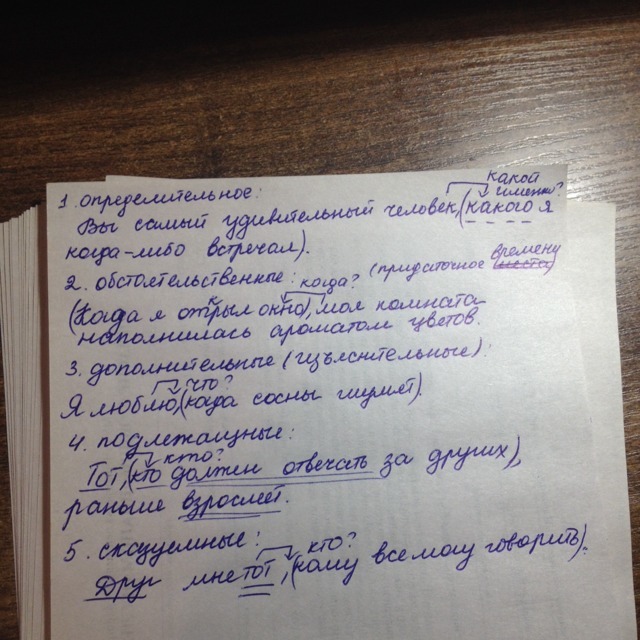 какой
именно?
1. определительное:
Вы самый удивительный человек, (какого я
когда-либо встречал).
2. обстоятельственные: когда? (придаточное места времени
(Когда я открыл окно), моя комната
наполнилась ароматом цветов.
3. дополнительные (изъяснительные):
что?
Я люблю, (когда сосны шумят).
4. подлежащные:
кто?
Тот, (кто должен отвечать за других),
раньше взрослеет.
5. сказуемные:
кто?
Друг мне тот, (кому все могу говорить).